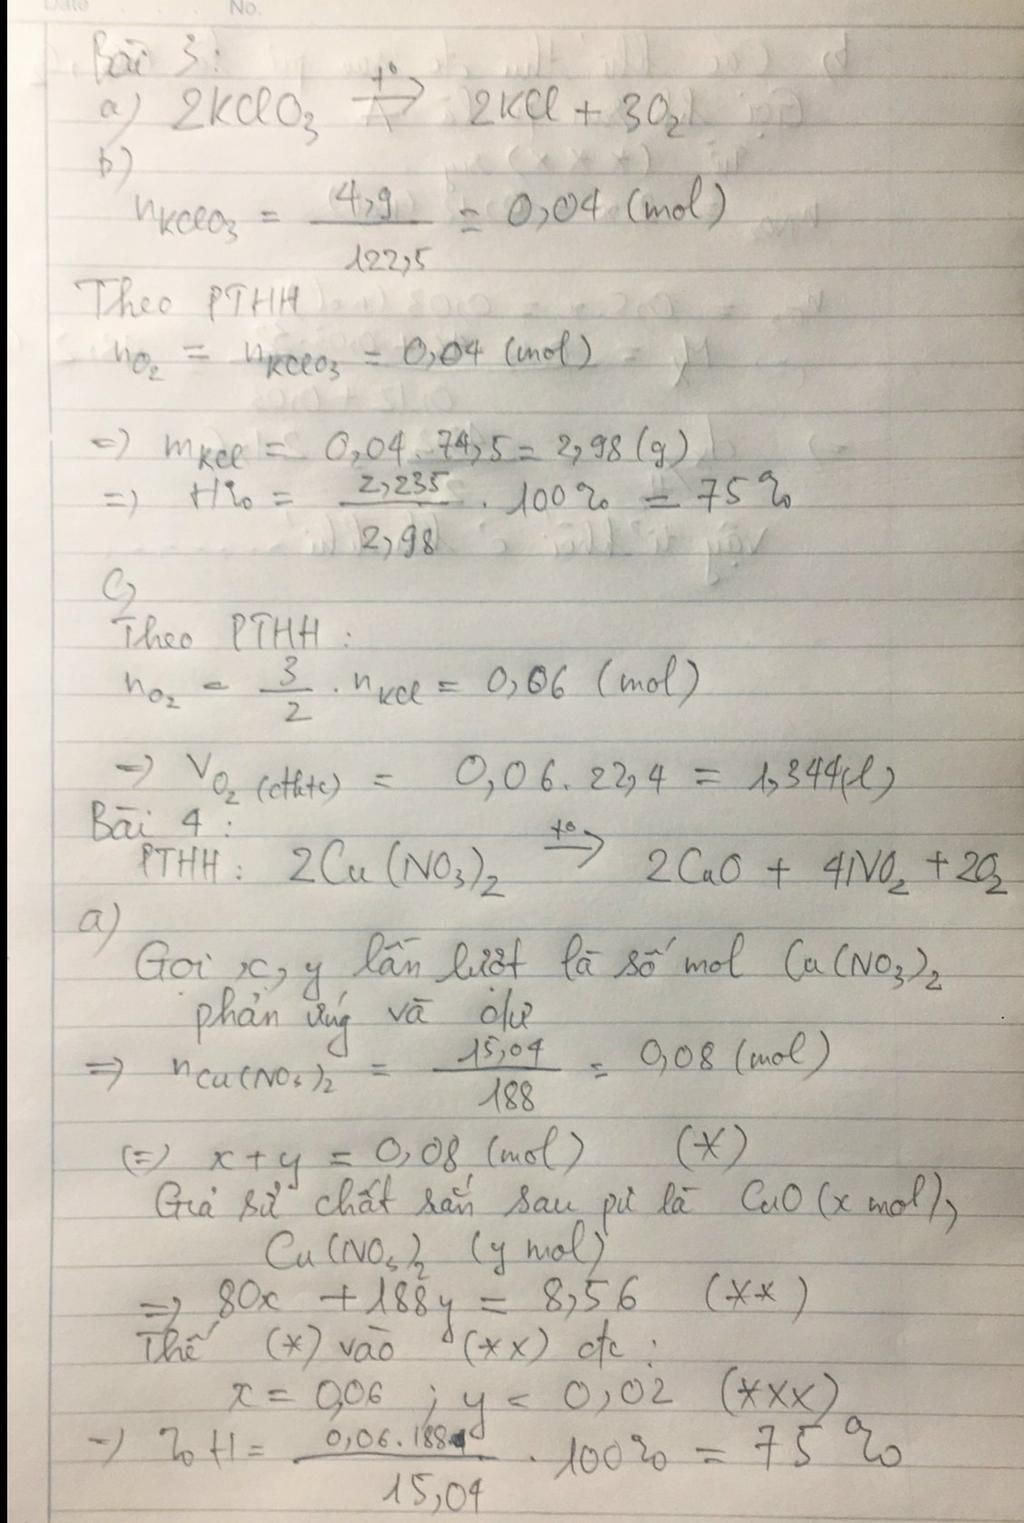 Date No.
Bài 3:
a) 2KClO3 t°→ 2KCl + 3O2
b)
nKClO3 = 4,9 / 122,5 = 0,04 (mol)
Theo PTHH
nO2 = nKClO3 = 0,04 (mol)
=> mKCl = 0,04 . 74,5 = 2,98 (g)
=> H% = 2,235 / 2,98 . 100% = 75%
C)
Theo PTHH:
nO2 = 3/2 . nKCl = 0,06 (mol)
=> VO2 (đktc) = 0,06 . 22,4 = 1,344 (l)
Bài 4:
PTHH: 2Cu(NO3)2 t°→ 2CuO + 4NO2 + 2O2
a)
Gọi x, y lần lượt là số mol Cu(NO3)2
phản ứng và dư
=> nCu(NO3)2 = 15,04 / 188 = 0,08 (mol)
(=) x + y = 0,08 (mol) (*)
Giả sử chất rắn sau pư là CuO (x mol),
Cu(NO3)2 (y mol)
=> 80x + 188y = 8,56 (**)
Thế (*) vào (**) đc:
x = 0,06 ; y = 0,02 (***)
=> %H = 0,06 . 188 / 15,04 . 100% = 75%